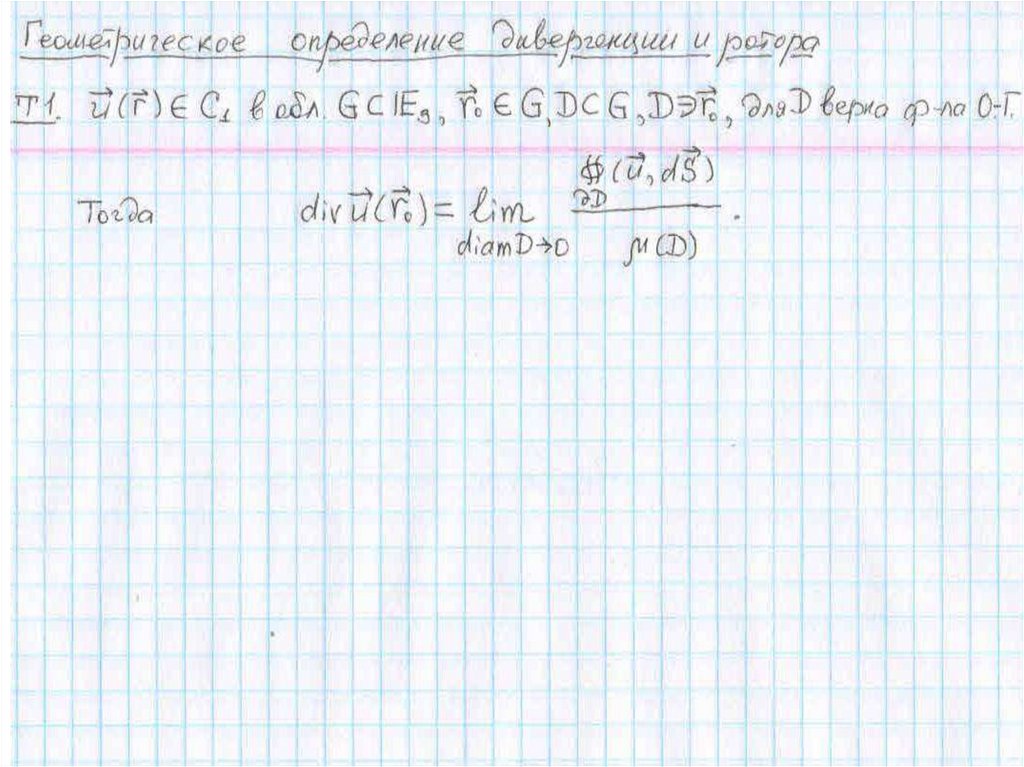 Геометрическое определение дивергенции и ротора
Т1. u⃗(r⃗) ∈ C₁ в обл. G ⊂ E₃, r⃗₀ ∈ G, D ⊂ G, D ∋ r⃗₀, для D верна ф-ла О.-Г.
Тогда div u⃗(r⃗₀) = lim_{diam D→0} ∯_{∂D} (u⃗, dS⃗) / μ(D).